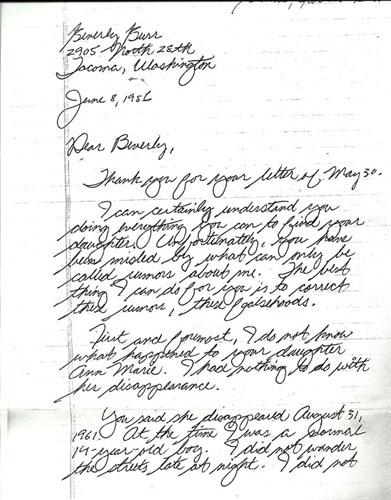 Beverly Burr
2905 North 28th
Tacoma, Washington
June 8, 1986
Dear Beverly,
Thank you for your letter of May 30.
I can certainly understand you
doing everything you can to find your
daughter. Unfortunately, you have
been misled by what can only be
called rumors about me. The best
thing I can do for you is to correct
these rumors, these falsehoods.
First and foremost, I do not know
what happened to your daughter
Ann Marie. I had nothing to do with
her disappearance.
You said she disappeared August 31,
1961. At the time I was a normal
14-year-old boy. I did not wander
the streets late at night. I did not